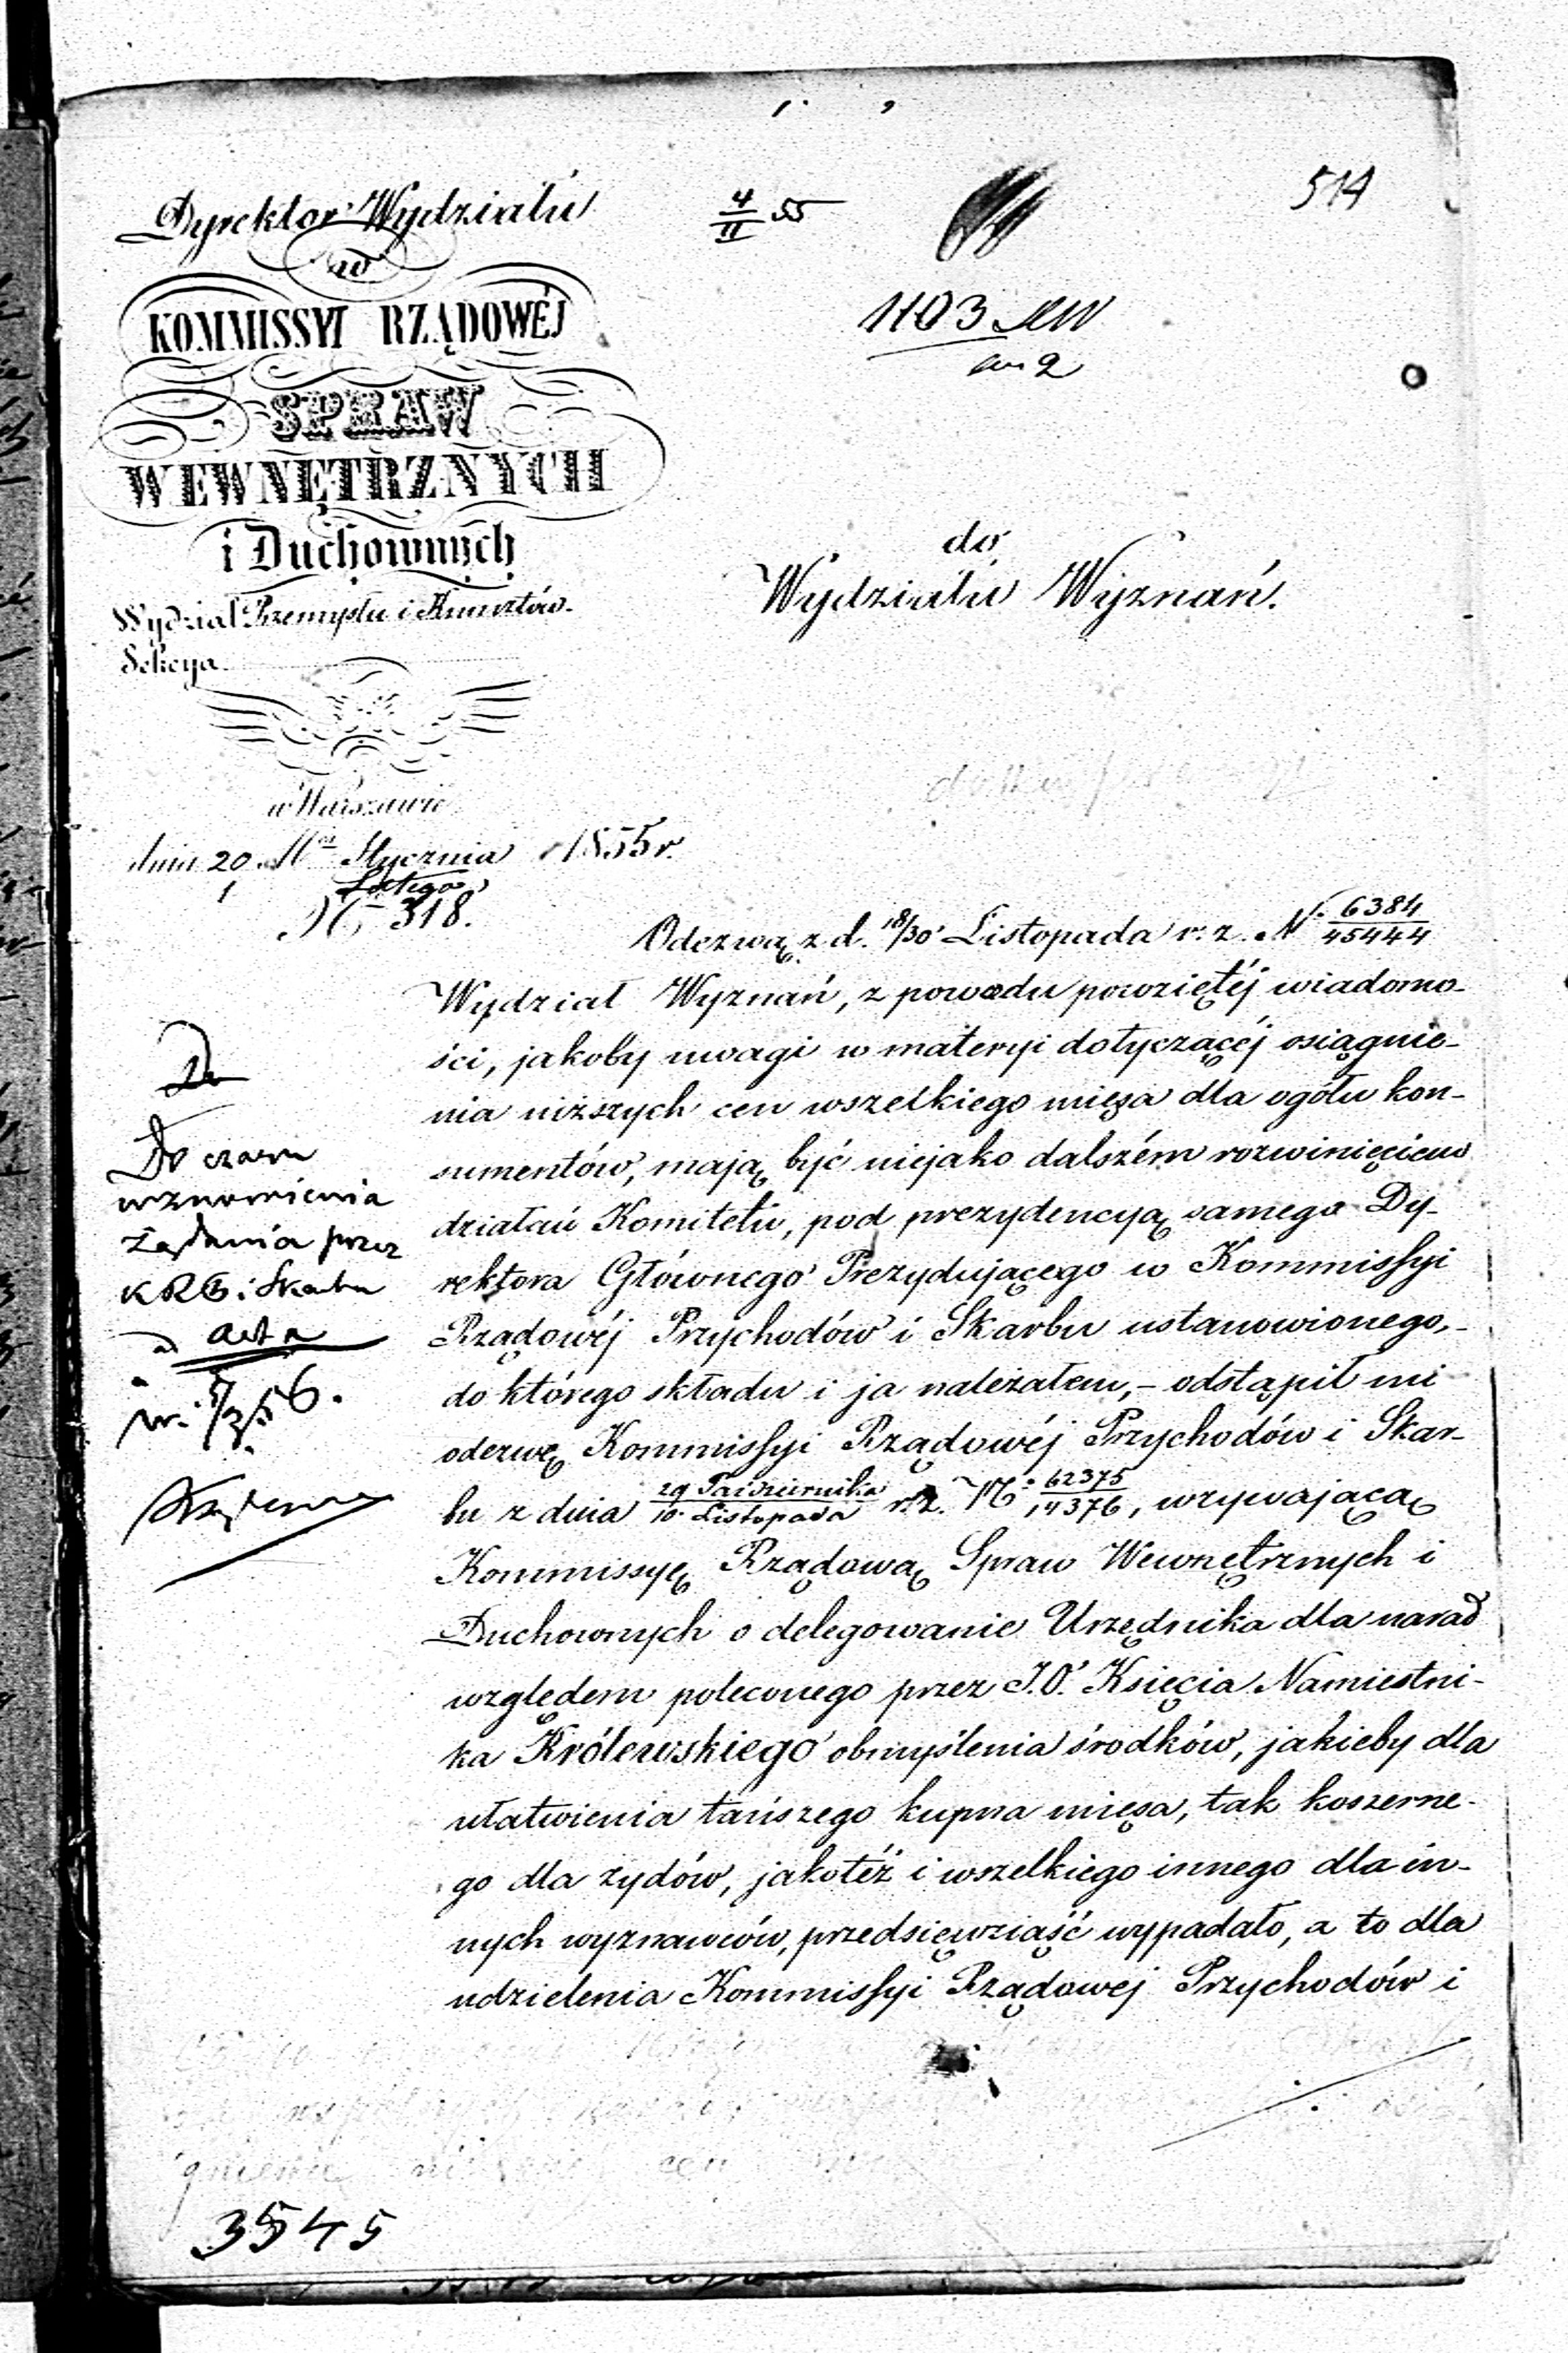 514
4/II 55
Dyrektor Wydziału
w
KOMMISSYI RZĄDOWÉJ
SPRAW
WEWNĘTRZNYCH
i Duchownych
Wydział Przemysłu i Kunsztów.
Sekcya
w Warszawie
dnia 20 Mca Stycznia 1855 r.
1 Lutego
No 318.
1103
do
Wydziału Wyznań.
Odezwą z d. 18/30 Listopada r. z. N. 6384/45444
Wydział Wyznań, z powodu powziętéj wiadomo-
ści, jakoby uwagi w materyi dotyczącéj osiągnie-
nia niższych cen wszelkiego mięsa dla ogółu kon-
sumentów, mają być niejako dalszém rozwinięciem
działań Komitetu, pod prezydencyą samego Dy-
rektora Głównego Prezydującego w Kommissyi
Rządowéj Przychodów i Skarbu ustanowionego,-
do którego składu i ja należałem,- odstąpił mi
odezwę Kommissyi Rządowéj Przychodów i Skar-
bu z dnia 29 Października/10 Listopada r. z. No 62375/14376, wzywającą
Kommissyę Rządową Spraw Wewnętrznych i
Duchownych o delegowanie Urzędnika dla narad
względem poleconego przez J.O. Księcia Namiestni-
ka Królewskiego obmyślenia środków, jakieby dla
ułatwienia tańszego kupna mięsa, tak koszerne-
go dla żydów, jakotéż i wszelkiego innego dla in-
nych wyznawców, przedsięwziąść wypadało, a to dla
udzielenia Kommissyi Rządowej Przychodów i
Do czasu
wznowienia
żądania przez
KRP i Skarbu
ad acta
3545